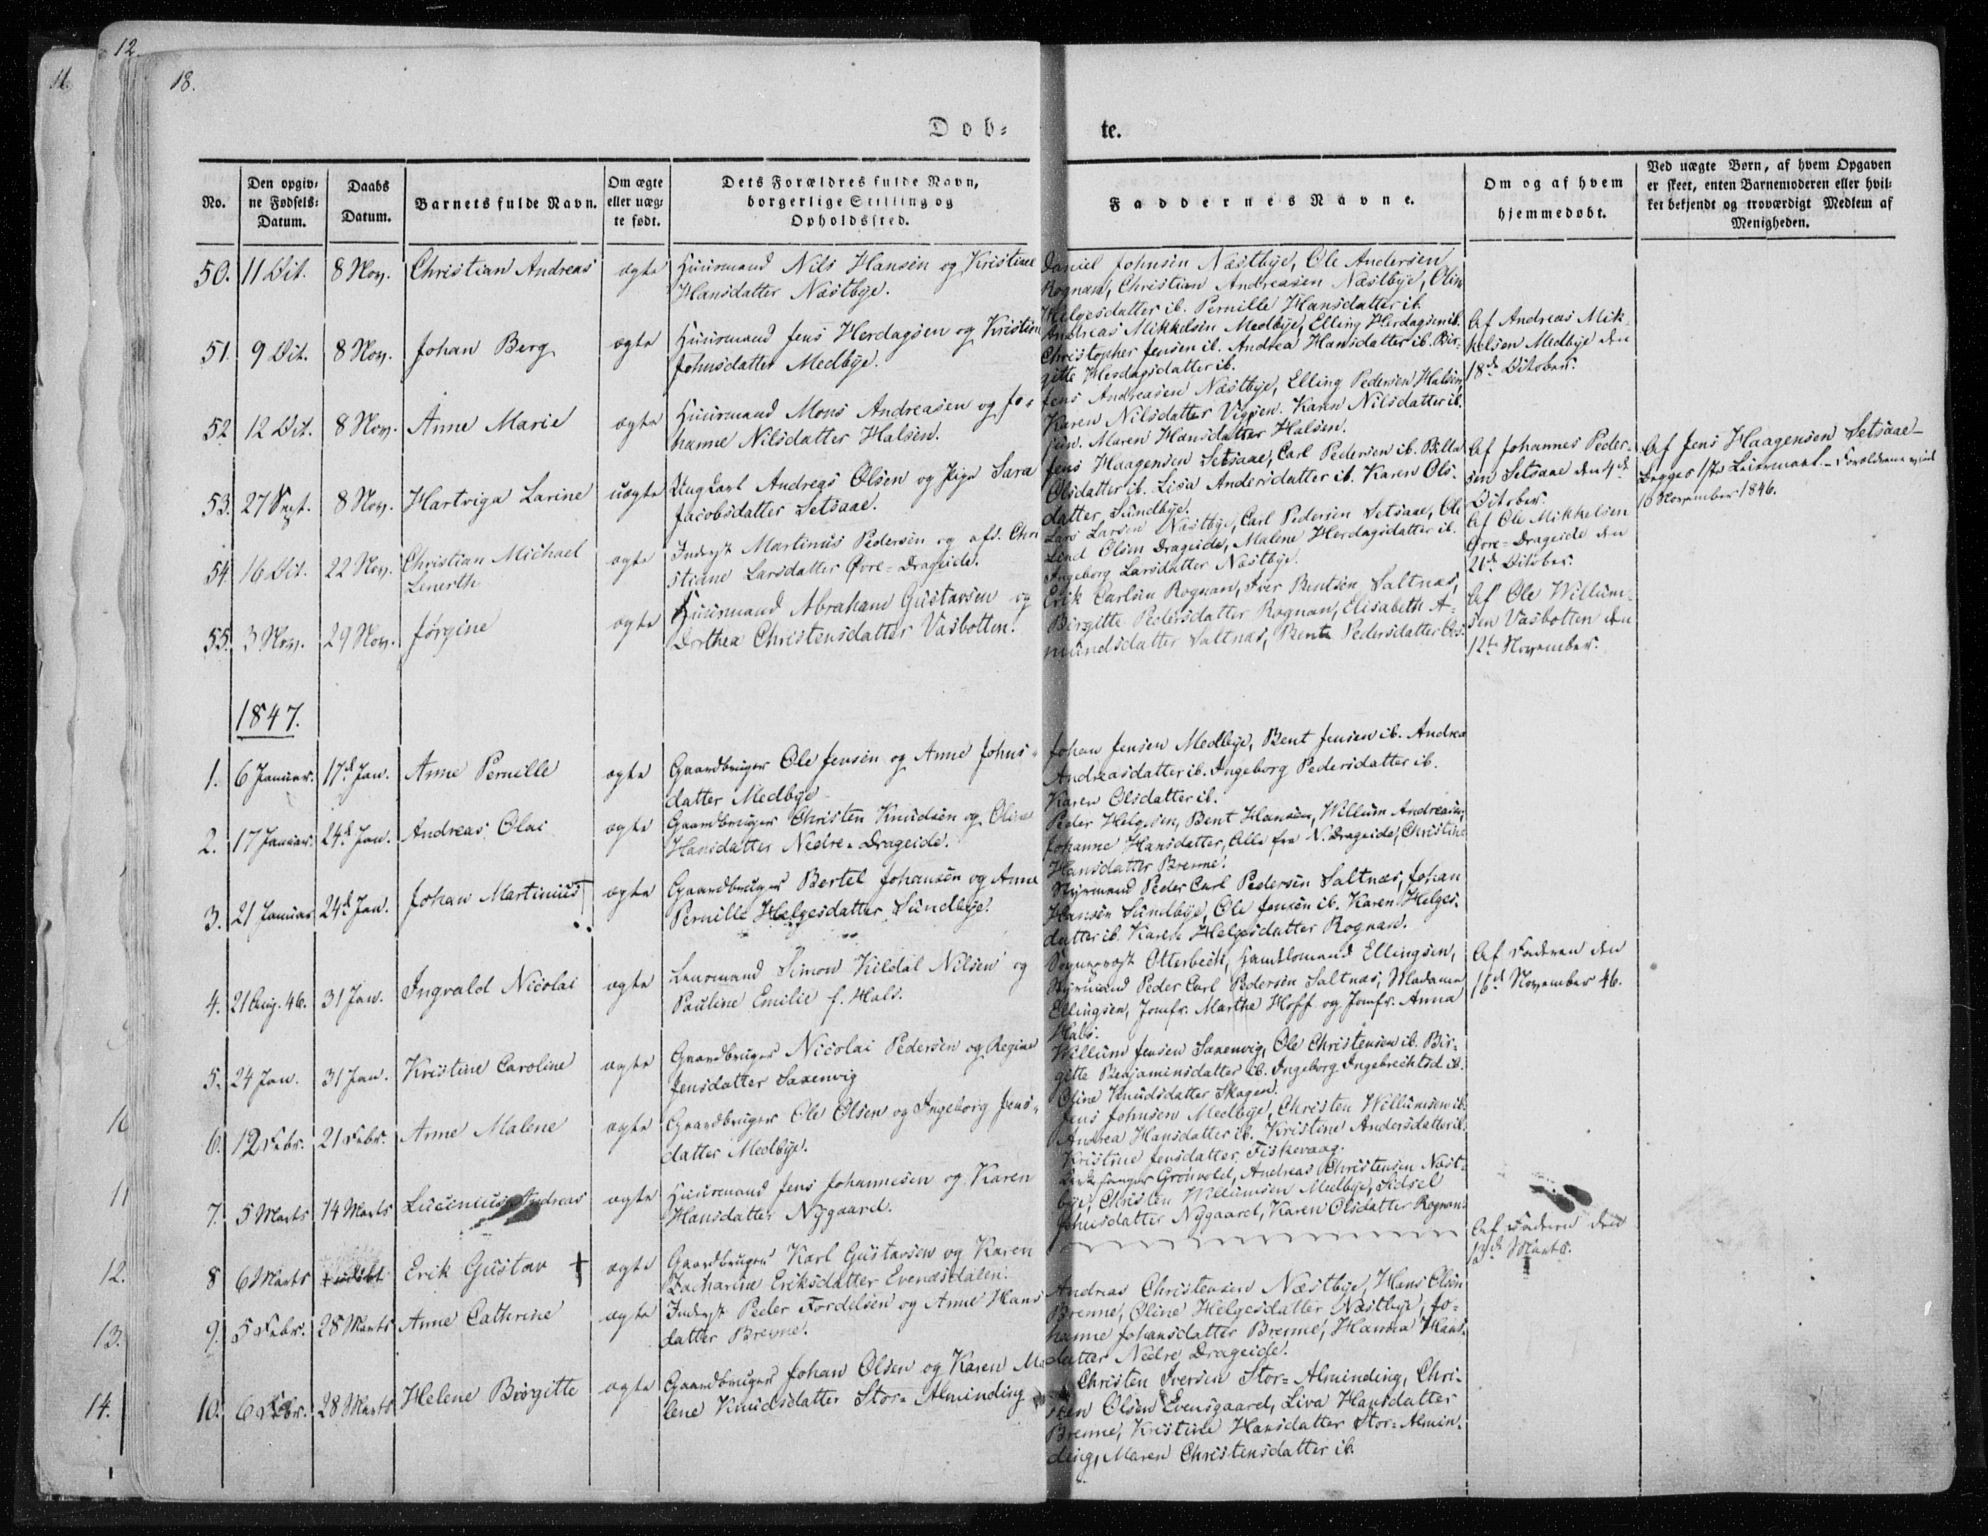 11.
12.
18.
Døb-
te.
No.
Den opgiv-
ne Fødsels-
Datum.
Daabs
Datum.
Barnets fulde Navn.
Om ægte
eller uæg-
te født.
Dets Forældres fulde Navn,
borgerlige Stilling og
Opholdssted.
Faddernes Navne.
Om og af hvem
hjemmedøbt.
Ved uægte Børn, af hvem Opgaven
er skeet, enten Barnemoderen eller hvil-
ket bekjendt og troværdigt Medlem af
Menigheden.
50. 11 Oct. 8 Nov. Christian Andreas ægte
Huusmand Nils Hansen og Kristine
Hansdatter Næstbye.
Daniel Johnsen Næstbye, Ole Andersen
Rognan, Christian Andreasen Næstbye, Olin
Helgesdatter ib. Pernille Hansdatter ib.
51. 9 Oct. 8 Nov. Johan Berg ægte
Huusmand Jens Herdagsen og Kristine
Johnsdatter Medbye.
Andreas Mikkelsen Medbye, Elling Herdagsen ib.
Christopher Jensen ib. Andrea Hansdatter ib. Bir-
gitte Herdagsdatter ib.
Af Andreas Mik-
kelsen Medbye den
18de October.
52. 12 Oct. 8 Nov. Anne Marie ægte
Huusmand Mons Andreasen og Jo-
hanne Nilsdatter Halsen.
Jens Andreasen Næstbye, Elling Pedersen Halsen,
Karen Nilsdatter Vigsen. Karen Nilsdatter ib.
Maren Hansdatter Halsen.
53. 27 Sept. 8 Nov. Hartviga Larine uægte
Ungkarl Andreas Olsen og Pige Sara
Jacobsdatter Setsaae.
Jens Haagensen Setsaae, Carl Pedersen ib. Billa
Olsdatter ib. Lisa Andersdatter ib. Karen Ols-
datter Sundbye.
Af Johannes Peder-
sen Setsaae den 4de
October.
Af Jens Haagensen Setsaae
Begges 1ste Leiermaal. Forældrene viet
16 November 1846.
54. 16 Oct. 22 Nov. Christian Michael
Lenerth ægte
Inderst Martinus Pedersen og afd. Chri
stiane Larsdatter Øvre-Drageide.
Lars Larsen Næstbye, Carl Pedersen Setsaae, Ole
Lind Olsen Drageide, Malene Herdagsdatter ib.
Ingeborg Larsdatter Næstbye.
Af Ole Mikkelsen
Øvre-Drageide den
21de October.
55. 3 Nov. 29 Nov. Jørgine ægte
Huusmand Abraham Gustavsen og
Dorthea Christensdatter Vasbotten.
Erik Carlsen Rognan, Iver Bentsen Saltnæs,
Birgitte Pedersdatter Rognan, Elisabeth A-
mundsdatter Saltnæs, Bente Pedersdatter
Af Ole Willum-
sen Vasbotten den
12te November.
1847.
1. 6 Januar. 17de Jan. Anne Pernille ægte
Gaardbruger Ole Jensen og Anne Johns-
datter Medbye
Johan Jensen Medbye, Bent Jensen ib. Andrea
Andreasdatter ib. Ingeborg Pedersdatter ib.
Karen Olsdatter ib.
2. 17 Januar. 24de Jan. Andreas Olai ægte
Gaardbruger Christen Knudsen og Oline
Hansdatter Nedre-Drageide.
Peder Helgesen, Bent Hansen, Willum Andreasen,
Johanne Hansdatter, Alle fra N. Drageide, Christine
Hansdatter Brenne.
3. 21 Januar 24de Jan. Johan Martinius † ægte
Gaardbruger Bertel Johansen og Anne
Pernille Helgesdatter Sundbye.
Styrmand Peder Carl Pedersen Saltnæs, Johan
Hansen Sundbye, Ole Jensen ib. Karen Helges-
datter ib. Karen Helgesdatter Rognan.
4. 21 Aug. 46. 31 Jan. Ingvald Nicolai ægte
Lensmand Simon Kildal Nilsen og
Pauline Emilie f. Hals.
Sogneprest Otterbech, Handelsmand Ellingsen,
Styrmand Peder Carl Pedersen Saltnæs, Madame
Ellingsen, Jomfr. Marthe Hoff og Jomfr. Anna
Hals.
Af Faderen den
16de November 46.
5. 24 Jan. 31 Jan. Kristine Caroline ægte
Gaardbruger Nicolai Pedersen og Regine
Jensdatter Saxenvig
Willum Jensen Saxenvig, Ole Christensen ib. Bir-
gitte Benjaminsdatter ib. Ingeborg Ingebrechtsd. ib.
Oline Knudsdatter Skagen.
6. 12 Febr. 21 Febr. Anne Malene ægte
Gaardbruger Ole Olsen og Ingeborg Jens-
datter Medbye.
Jens Johnsen Medbye, Christen Willumsen ib.
Andrea Hansdatter ib. Kristine Andersdatter ib.
Kristine Jensdatter Fiskevaag.
7. 5 Marts 14 Marts Lucinius Andreas ægte
Huusmand Jens Johannesen og Karen
Hansdatter Nygaard.
Kirkesanger Grønvold, Andreas Christensen Næst-
bye, Christen Willumsen Medbye, Sidsel
Johnsdatter Nygaard, Karen Olsdatter Rognan.
8 6 Marts Erik Gustav † ægte
Gaardbruger Karl Gustavsen og Karen
Zacharine Eriksdatter Evenesdalen.
Af Faderen den
13de Marts.
9. 5 Febr. 28 Marts Anne Cathrine ægte
Inderst Peder Fordelsen og Anne Hans
datter Brenne.
Andreas Christensen Næstbye, Hans Olsen
Brenne, Oline Helgesdatter Næstbye, Jo-
hanne Johansdatter Brenne, Hanna Hans-
datter Nedre Drageide.
10. 6 Febr. 28 Marts Helene Birgitte ægte
Gaardbruger Johan Olsen og Karen Ma
lene Knudsdatter Stor-Alminding
Christen Iversen Stor-Alminding, Chri-
sten Olsen Evensgaard, Liva Hansdatter
Brenne, Kristine Hansdatter Stor-Almin-
ding, Maren Christensdatter ib.
10
11
12.
13.
14.